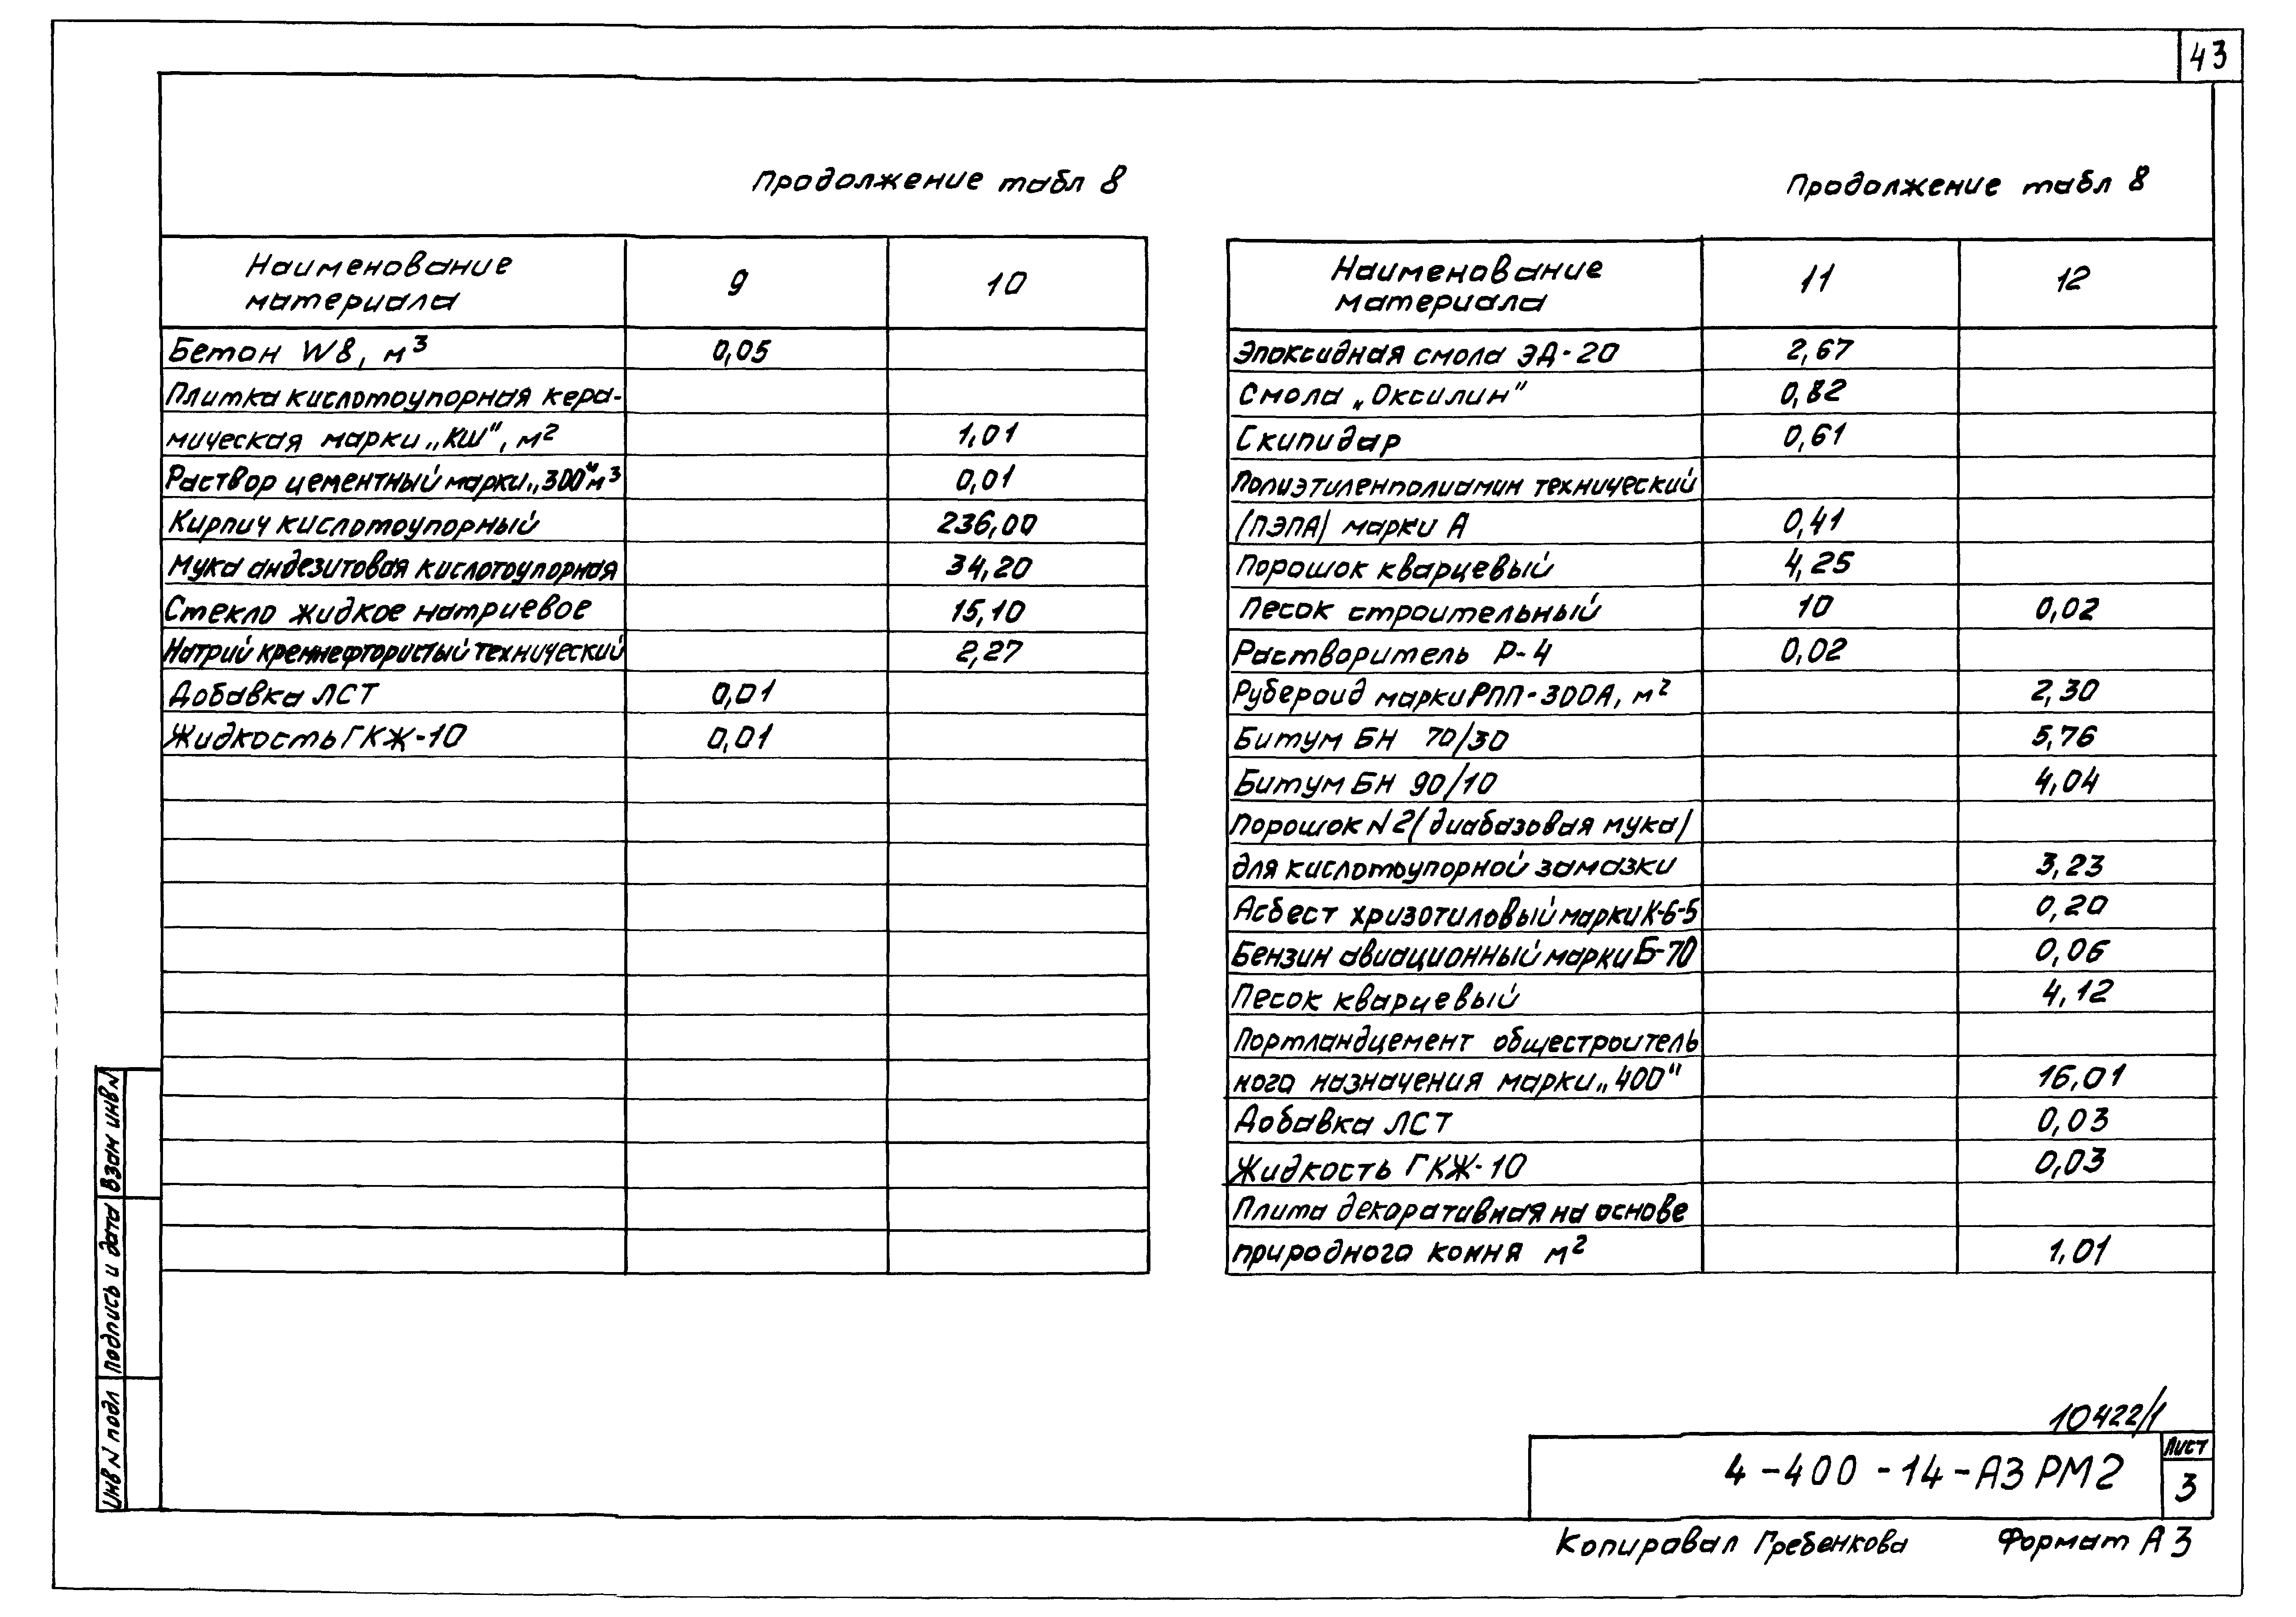 43
Продолжение табл 8
Наименование материала 9 10
Бетон W8, м³ 0,05
Плитка кислотоупорная кера-
мическая марки „КШ", м² 1,01
Раствор цементный марки „300" м³ 0,01
Кирпич кислотоупорный 236,00
Мука андезитовая кислотоупорная 34,20
Стекло жидкое натриевое 15,10
Натрий кремнефтористый технический 2,27
Добавка ЛСТ 0,01
Жидкость ГКЖ-10 0,01
Продолжение табл 8
Наименование материала 11 12
Эпоксидная смола ЭД-20 2,67
Смола „Оксилин" 0,82
Скипидар 0,61
Полиэтиленполиамин технический
(ПЭПА) марки А 0,41
Порошок кварцевый 4,25
Песок строительный 10 0,02
Растворитель Р-4 0,02
Рубероид марки РПП-300А, м² 2,30
Битум БН 70/30 5,76
Битум БН 90/10 4,04
Порошок N2 (диабазовая мука)
для кислотоупорной замазки 3,23
Асбест хризотиловый марки К-6-5 0,20
Бензин авиационный марки Б-70 0,06
Песок кварцевый 4,12
Портландцемент общестроитель
ного назначения марки „400" 16,01
Добавка ЛСТ 0,03
Жидкость ГКЖ-10 0,03
Плита декоративная на основе
природного комня м² 1,01
Взам инв N
Подпись и дата
Инв N подл
10422/1
4-400-14-АЗ РМ2
Лист
3
Копировал Гребенкова Формат А3